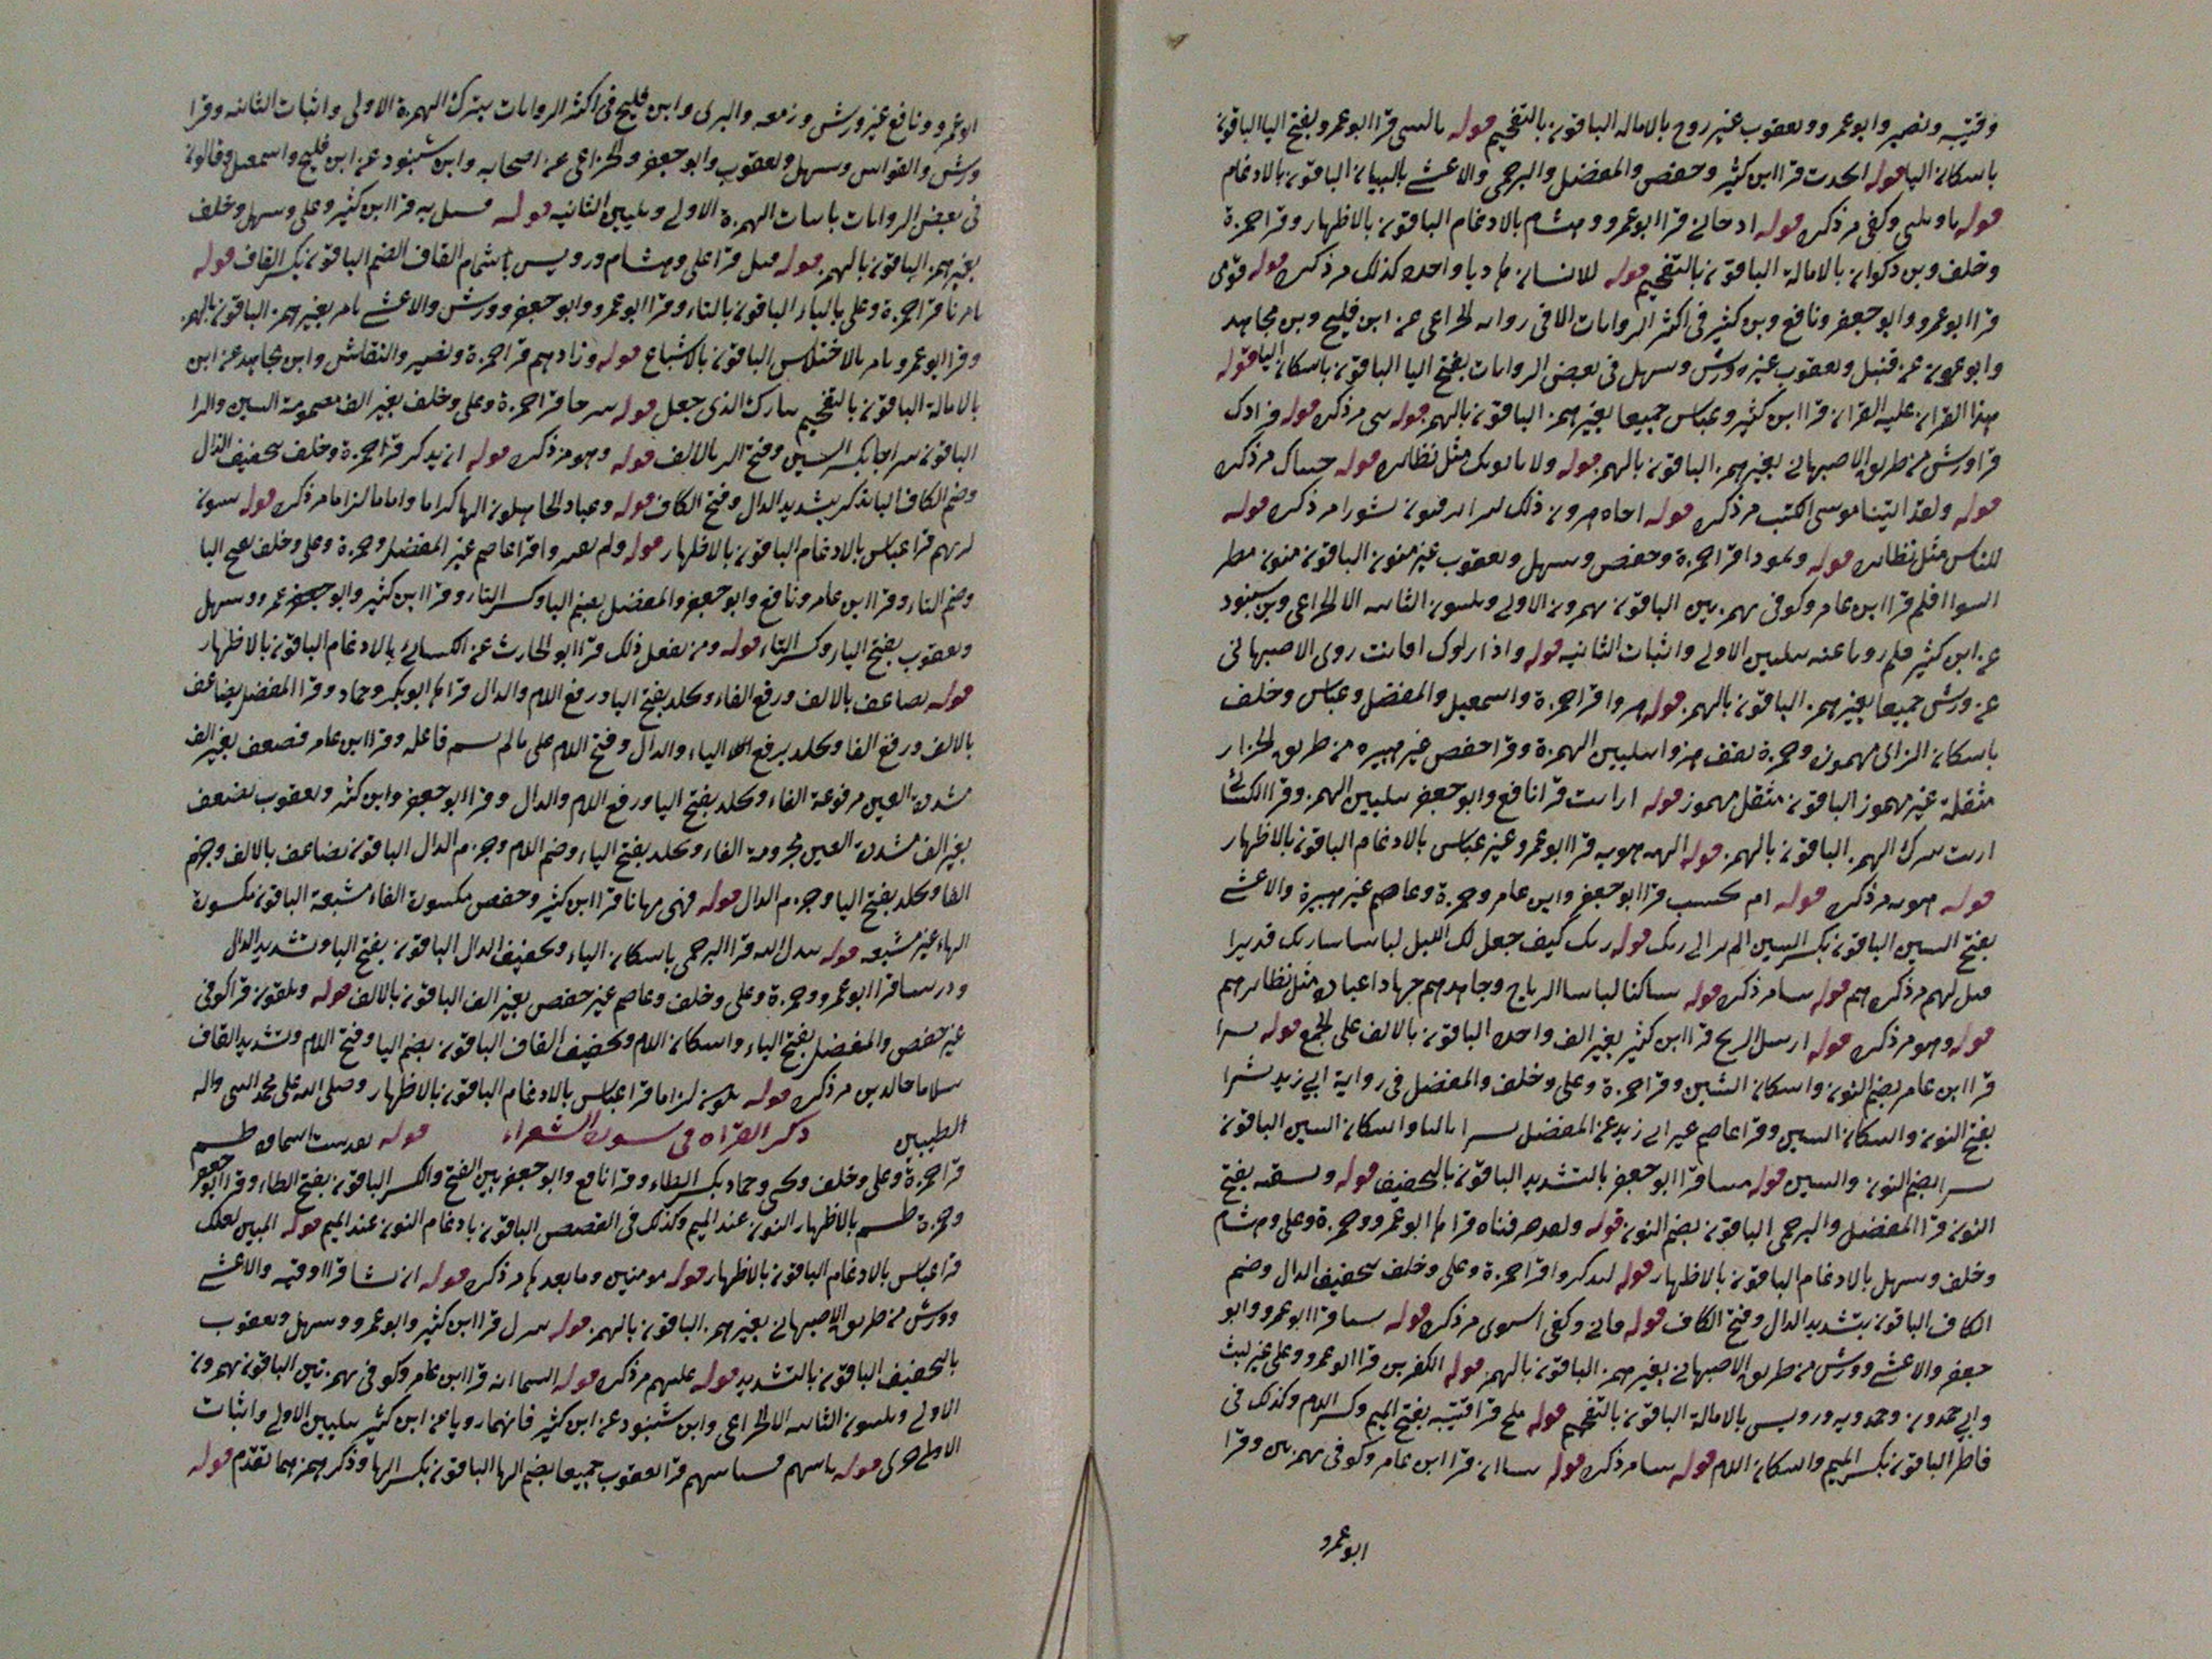 وقتيبه ونصير وابو عمرو ويعقوب غير روح بالاماله الباقون بالتفخيم قوله ياليتنى قرا ابو عمرو بفتح اليا الباقون
باسكان اليا قوله اتخذت قرا ابن كثير وحفص والمفضل والبرجمى والاعشے بالبيان الباقون بالادغام
قوله ياويلتى وكفى مر ذكره قوله اذ جانے قرا ابو عمرو وهشام بالادغام الباقون بالاظهار وقرا حمزة
وخلف وبن ذكوان بالامالة الباقون بالتفخيم قوله للانسان هاديا واحده كذلك مر ذكره قوله قومى
قرا ابو عمرو وابو جعفر ونافع وبن كثير فى اكثر الروايات الا فى روايه الخزاعى عن ابن فليح وبن مجاهد
وابو عون عن قنبل ويعقوب غير رويس وسهل فى بعض الروايات بفتح اليا الباقون باسكان اليا قوله
هذا القران عليه القران قرا ابن كثير وعباس جميعا بغير همز الباقون بالهمز قوله شى مر ذكره قوله فؤادك
قرا ورش من طريق الاصبهانے بغير همز الباقون بالهمز قوله ولا ياتونك مثل نظائره قوله جئناك مر ذكره
قوله ولقد اتينا موسى الكتب مر ذكره قوله اخاه هرون ذلك نشورا مر ذكره قوله
للناس مثل نظائره قوله وثمودا قرا حمزة وحفص وسهل ويعقوب غير منون الباقون منون مطر
السوا افلم قرا ابن عامر وكوفى بهمزتين الباقون يهمزون الاولے ويلينون الثانيه الا الخزاعى وبن شنبوذ
عن ابن كثير فلم رويا عنه بتليين الاولے واثبات الثانيه قوله واذا راوك افانت روى الاصبهانى
عن ورش جميعا بغير همز الباقون بالهمز قوله هزوا قرا حمزة واسمعيل والمفضل وعباس وخلف
باسكان الزاى مهموز وحمزة يقف هزوا بتليين الهمزة وقرا حفص غير هبيره من طريق الخزاز
مثقلة غير مهموز الباقون مثقل مهموز قوله ارايت قرا نافع وابو جعفر بتليين الهمز وقرا الكسائے
اريت بترك الهمز الباقون بالهمز قوله الهه هويه قرا ابو عمرو غير عباس بالادغام الباقون بالاظهار
قوله هويه مر ذكره قوله ام تحسب قرا ابو جعفر وابن عامر وحمزة وعاصم غير هبيرة والاعشے
بفتح السين الباقون بكسر السين الم تر الى ربك قوله ربك كيف جعل لكم الليل لباسا ربك قديرا
قيل لهم مر ذكرهم قوله شا مر ذكره قوله ساكنا لباسا الرياح وجاهدهم جهادا عباده مثل نظائرهم
قوله وهو مر ذكره قوله ارسل الريح قرا ابن كثير بغير الف واحده الباقون بالالف على الجمع قوله بشرا
قرا ابن عامر بضم النون واسكان الشين وقرا حمزة وعلى وخلف والمفضل فى رواية ابى زيد نشرا
بفتح النون واسكان الشين وقرا عاصم غير ابى زيد عن المفضل بشرا بالبا واسكان الشين الباقون
نشرا بضم النون والشين قوله ميتا قرا ابو جعفر بالتشديد الباقون بالتخفيف قوله ونسقيه بفتح
النون قرا المفضل والبرجمى الباقون بضم النون قوله ولقد صرفناه قرا ها ابو عمرو وحمزة وعلى وهشام
وخلف وسهل بالادغام الباقون بالاظهار قوله ليذكروا قرا حمزة وعلى وخلف بتخفيف الدال وضم
الكاف الباقون بتشديد الدال وفتح الكاف قوله فابى وكفى استوى مر ذكره قوله شا قرا ابو عمرو وابو
جعفر والاعشے وورش من طريق الاصبهانے بغير همز الباقون بالهمز قوله الكفرين قرا ابو عمرو وعلى غير ليث
وابى حمدون وحمدويه ورويس بالامالة الباقون بالتفخيم قوله ملح قرا قتيبه بفتح الميم وكسر اللام وكذلك فى
فاطر الباقون بكسر الميم واسكان اللام قوله شا مر ذكره قوله شا ان قرا ابن عامر وكوفى بهمزتين وقرا
ابو عمرو
ابو عمرو ونافع غير ورش وزمعه والبزى وابن فليح فى اكثر الروايات بترك الهمزة الاولى واثبات الثانيه وقرا
ورش والقواس وسهل ويعقوب وابو جعفر والخزاعى عن اصحابه وابن شنبوذ عن ابن فليح واسمعيل وقالون
فى بعض الروايات باثبات الهمزة الاولے وتليين الثانيه قوله فسل به قرا ابن كثير وعلى وسهل وخلف
بغير همز الباقون بالهمز قوله قيل قرا على وهشام ورويس باشمام القاف الضم الباقون بكسر القاف قوله
تامرنا قرا حمزة وعلى بالياء الباقون بالتاء وقرا ابو عمرو وابو جعفر وورش والاعشے تامر بغير همز الباقون بالهمز
وقرا ابو عمرو تامر بالاختلاس الباقون بالاشباع قوله وزادهم قرا حمزة ونصير والنقاش وابن مجاهد عن ابن
بالامالة الباقون بالتفخيم تبارك الذى جعل قوله سرجا قرا حمزة وعلى وخلف بغير الف مضمومة السين والرا
الباقون سراجا بكسر السين وفتح الر بالالف قوله وهو مر ذكره قوله ان يذكر قرا حمزة وخلف بتخفيف الذال
وضم الكاف الباقون يذكر بتشديد الدال وفتح الكاف قوله وعباد الجاهلون الها كراما واماما لزاما مر ذكره قوله يبيتون
لربهم قرا عباس بالادغام الباقون بالاظهار قوله ولم يقتروا قرا عاصم غير المفضل وحمزة وعلى وخلف بفتح اليا
وضم التاء وقرا ابن عامر ونافع وابو جعفر والمفضل بضم اليا وكسر التاء وقرا ابن كثير وابو عمرو وسهل
ويعقوب بفتح الياء وكسر التاء قوله ومن يفعل ذلك قرا ابو الحارث عن الكسائے بالادغام الباقون بالاظهار
قوله يضاعف بالالف ورفع الفاء ويخلد بفتح اليا ورفع اللام والدال قرا ها ابو بكر وحماد وقرا المفضل يضاعف
بالالف ورفع الفا ويخلد برفع الياء والدال وفتح اللام على مالم يسم فاعله وقرا ابن عامر فضعف بغير الف
مشددة العين مرفوعة الفاء ويخلد بفتح اليا ورفع اللام والدال وقرا ابو جعفر وابن كثير ويعقوب يضعف
بغير الف مشددة العين مجزومة الفاء ويخلد بفتح الياء وضم اللام وجزم الدال الباقون يضاعف بالالف وجزم
الفا ويخلد بفتح اليا وجزم الدال قوله فيهى مهانا قرا ابن كثير وحفص مكسورة الهاء مشبعة الباقون مكسورة
الهاء غير مشبعه قوله يبدل الله قرا البرجمى باسكان الباء وتخفيف الدال الباقون بفتح البا وتشديد الدال
وذريتنا قرا ابو عمرو وحمزة وعلى وخلف وعاصم غير حفص بغير الف الباقون بالالف قوله ويلقون قرا كوفى
غير حفص والمفضل بفتح الياء واسكان اللام وتخفيف القاف الباقون بضم اليا وفتح اللام وتشديد القاف
سلاما خالدين مر ذكره قوله يكون لزاما قرا عباس بالادغام الباقون بالاظهار وصلى الله على محمد النبى واله
الطيبين ذكر القراه فى سورة الشعراء قوله تقدست اسماؤه طسم
قرا حمزة وعلى وخلف ويحيى وحماد بكسر الطاء وقرا نافع وابو جعفر بين الفتح والكسر الباقون بفتح الطاء وقرا ابو جعفر
وحمزة طسم بالاظهار النون عند الميم وكذلك فى القصص الباقون بادغام النون عند الميم قوله المبين لعلك
قرا عباس بالادغام الباقون بالاظهار قوله مومنين وما بعد ها مر ذكره قوله ان نشا قرا اوقيه والاعشے
وورش من طريق الاصبهانے بغير همز الباقون بالهمز قوله ننزل قرا ابن كثير وابو عمرو وسهل ويعقوب
بالتخفيف الباقون بالتشديد قوله عليهم مر ذكره قوله السما اية قرا ابن عامر وكوفى بهمزتين الباقون يهمزون
الاولے ويلينون الثانيه الا الخزاعى وابن شنبوذ عن ابن كثير فانهما رويا عن ابن كثير بتليين الاولے واثبات
الاخرى قوله ياتيهم فسياتيهم قرا يعقوب جميعا بضم الها الباقون بكسر الها وذكر همزهما تقدم قوله